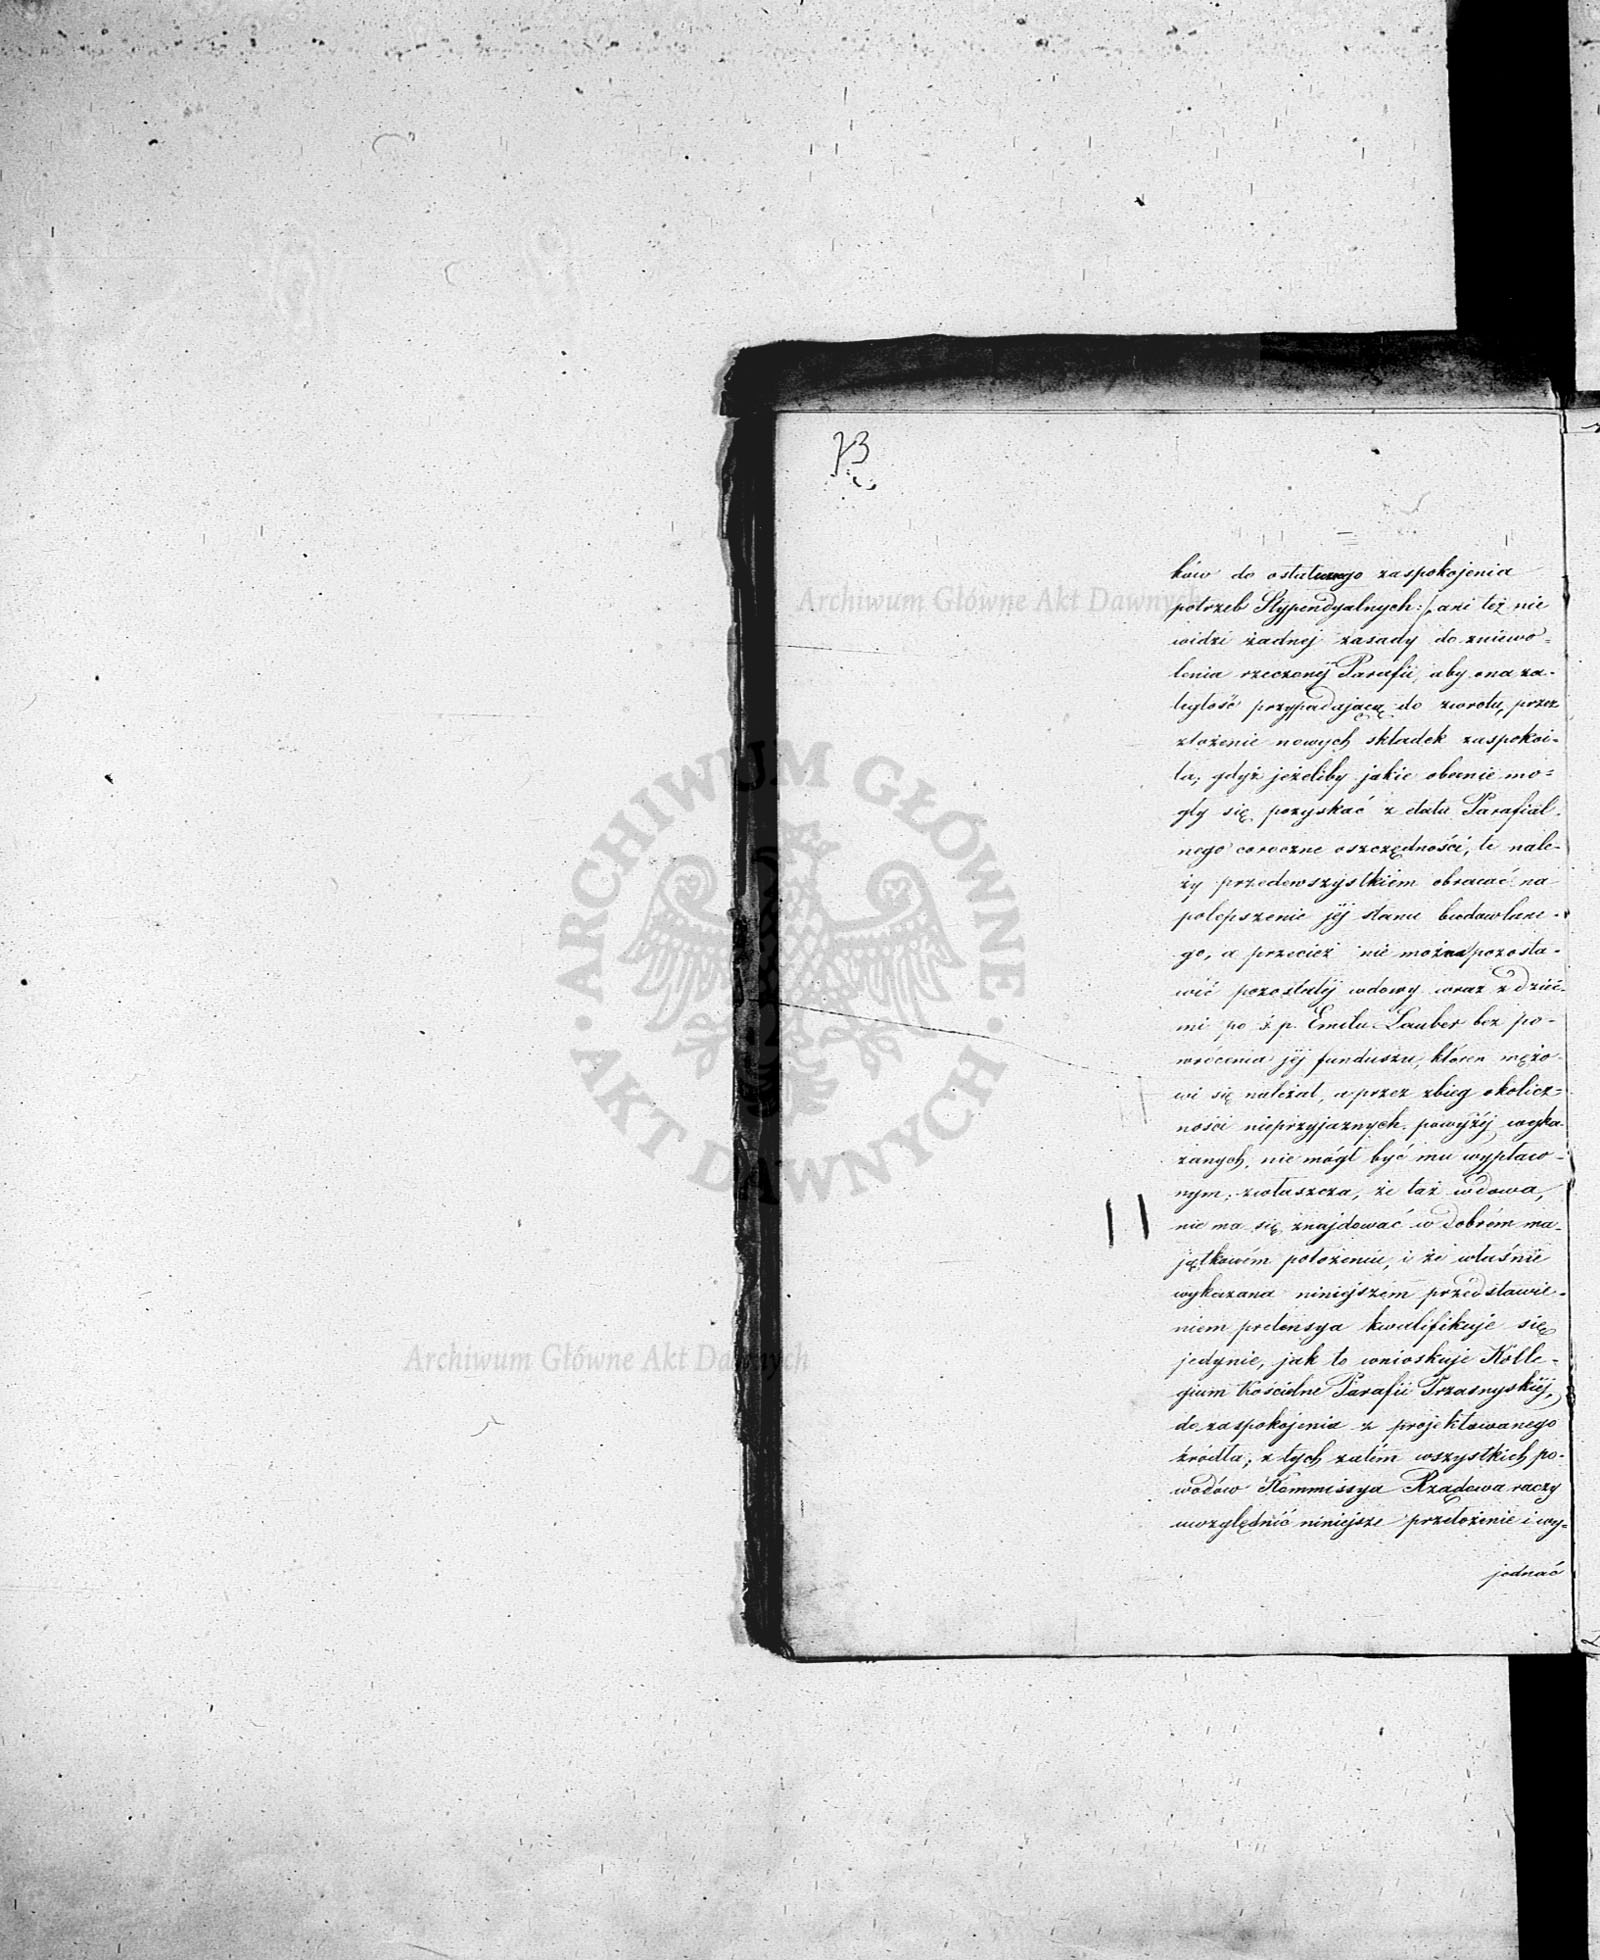 73
ków do ostatecznego zaspokojenia
potrzeb Stypendyalnych:/, ani też nie
widzi żadnej zasady do zniewo=
lenia rzeczonéj Parafii, aby ona za-
ległość przypadającą do zwrotu, przez
złożenie nowych składek zaspokoi-
ła, gdyż jeżeliby jakie obecnie mo=
gły się pozyskać z etatu Parafial-
nego coroczne oszczędności, te nale-
ży przedewszystkiem obracać na
polepszenie jéj stanu budowlane-
go, a przecież nie można pozosta-
wić pozostałéj wdowy wraz z dzieć-
mi po ś. p. Emilu Lauber bez po-
wrócenia jéj funduszu, któren mężo-
wi się należał, a przez zbieg okolicz=
ności nieprzyjaznych, powyżéj wyka-
zanych, nie mógł być mu wypłaco-
nym, zwłaszcza, że taż wdowa,
nie ma się znajdować w dobrém ma-
jątkowém położeniu, i że właśnie
wykazana niniejszem przedstawie-
niem pretensya kwalifikuje się
jedynie, jak to wnioskuje Kolle-
gium Kościelne Parafii Przasnyskiéj,
do zaspokojenia z projektowanego
źródła; z tych zatém wszystkich po-
wodów Kommissya Rządowa raczy
uwzględnić niniejsze przełożenie i wy-
jednać
Archiwum Główne Akt Dawnych
Archiwum Główne Akt Dawnych
ARCHIWUM GŁÓWNE
AKT DAWNYCH